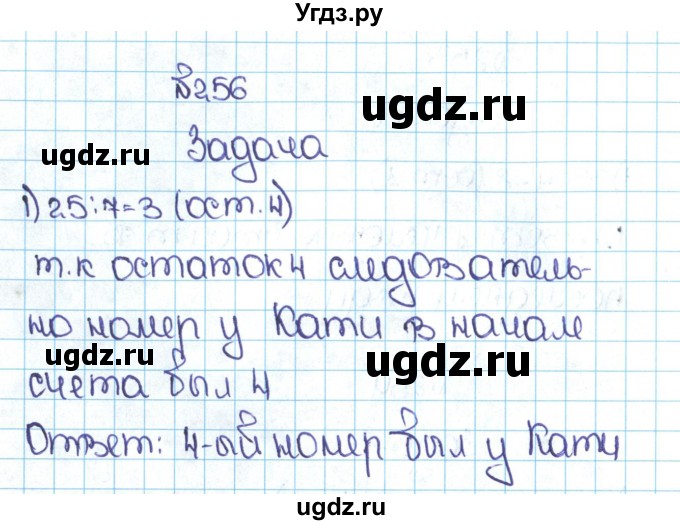 Угдз.ру
№256
ugdz.ru
Задача
ugdz.ru
1) 25:7=3 (ост.4)
т.к остаток 4 следователь-
но номер у Кати в начале
ugdz.ru
ugdz.ru
счета был 4
Ответ: 4-ый номер был у Кати
ugdz.ru